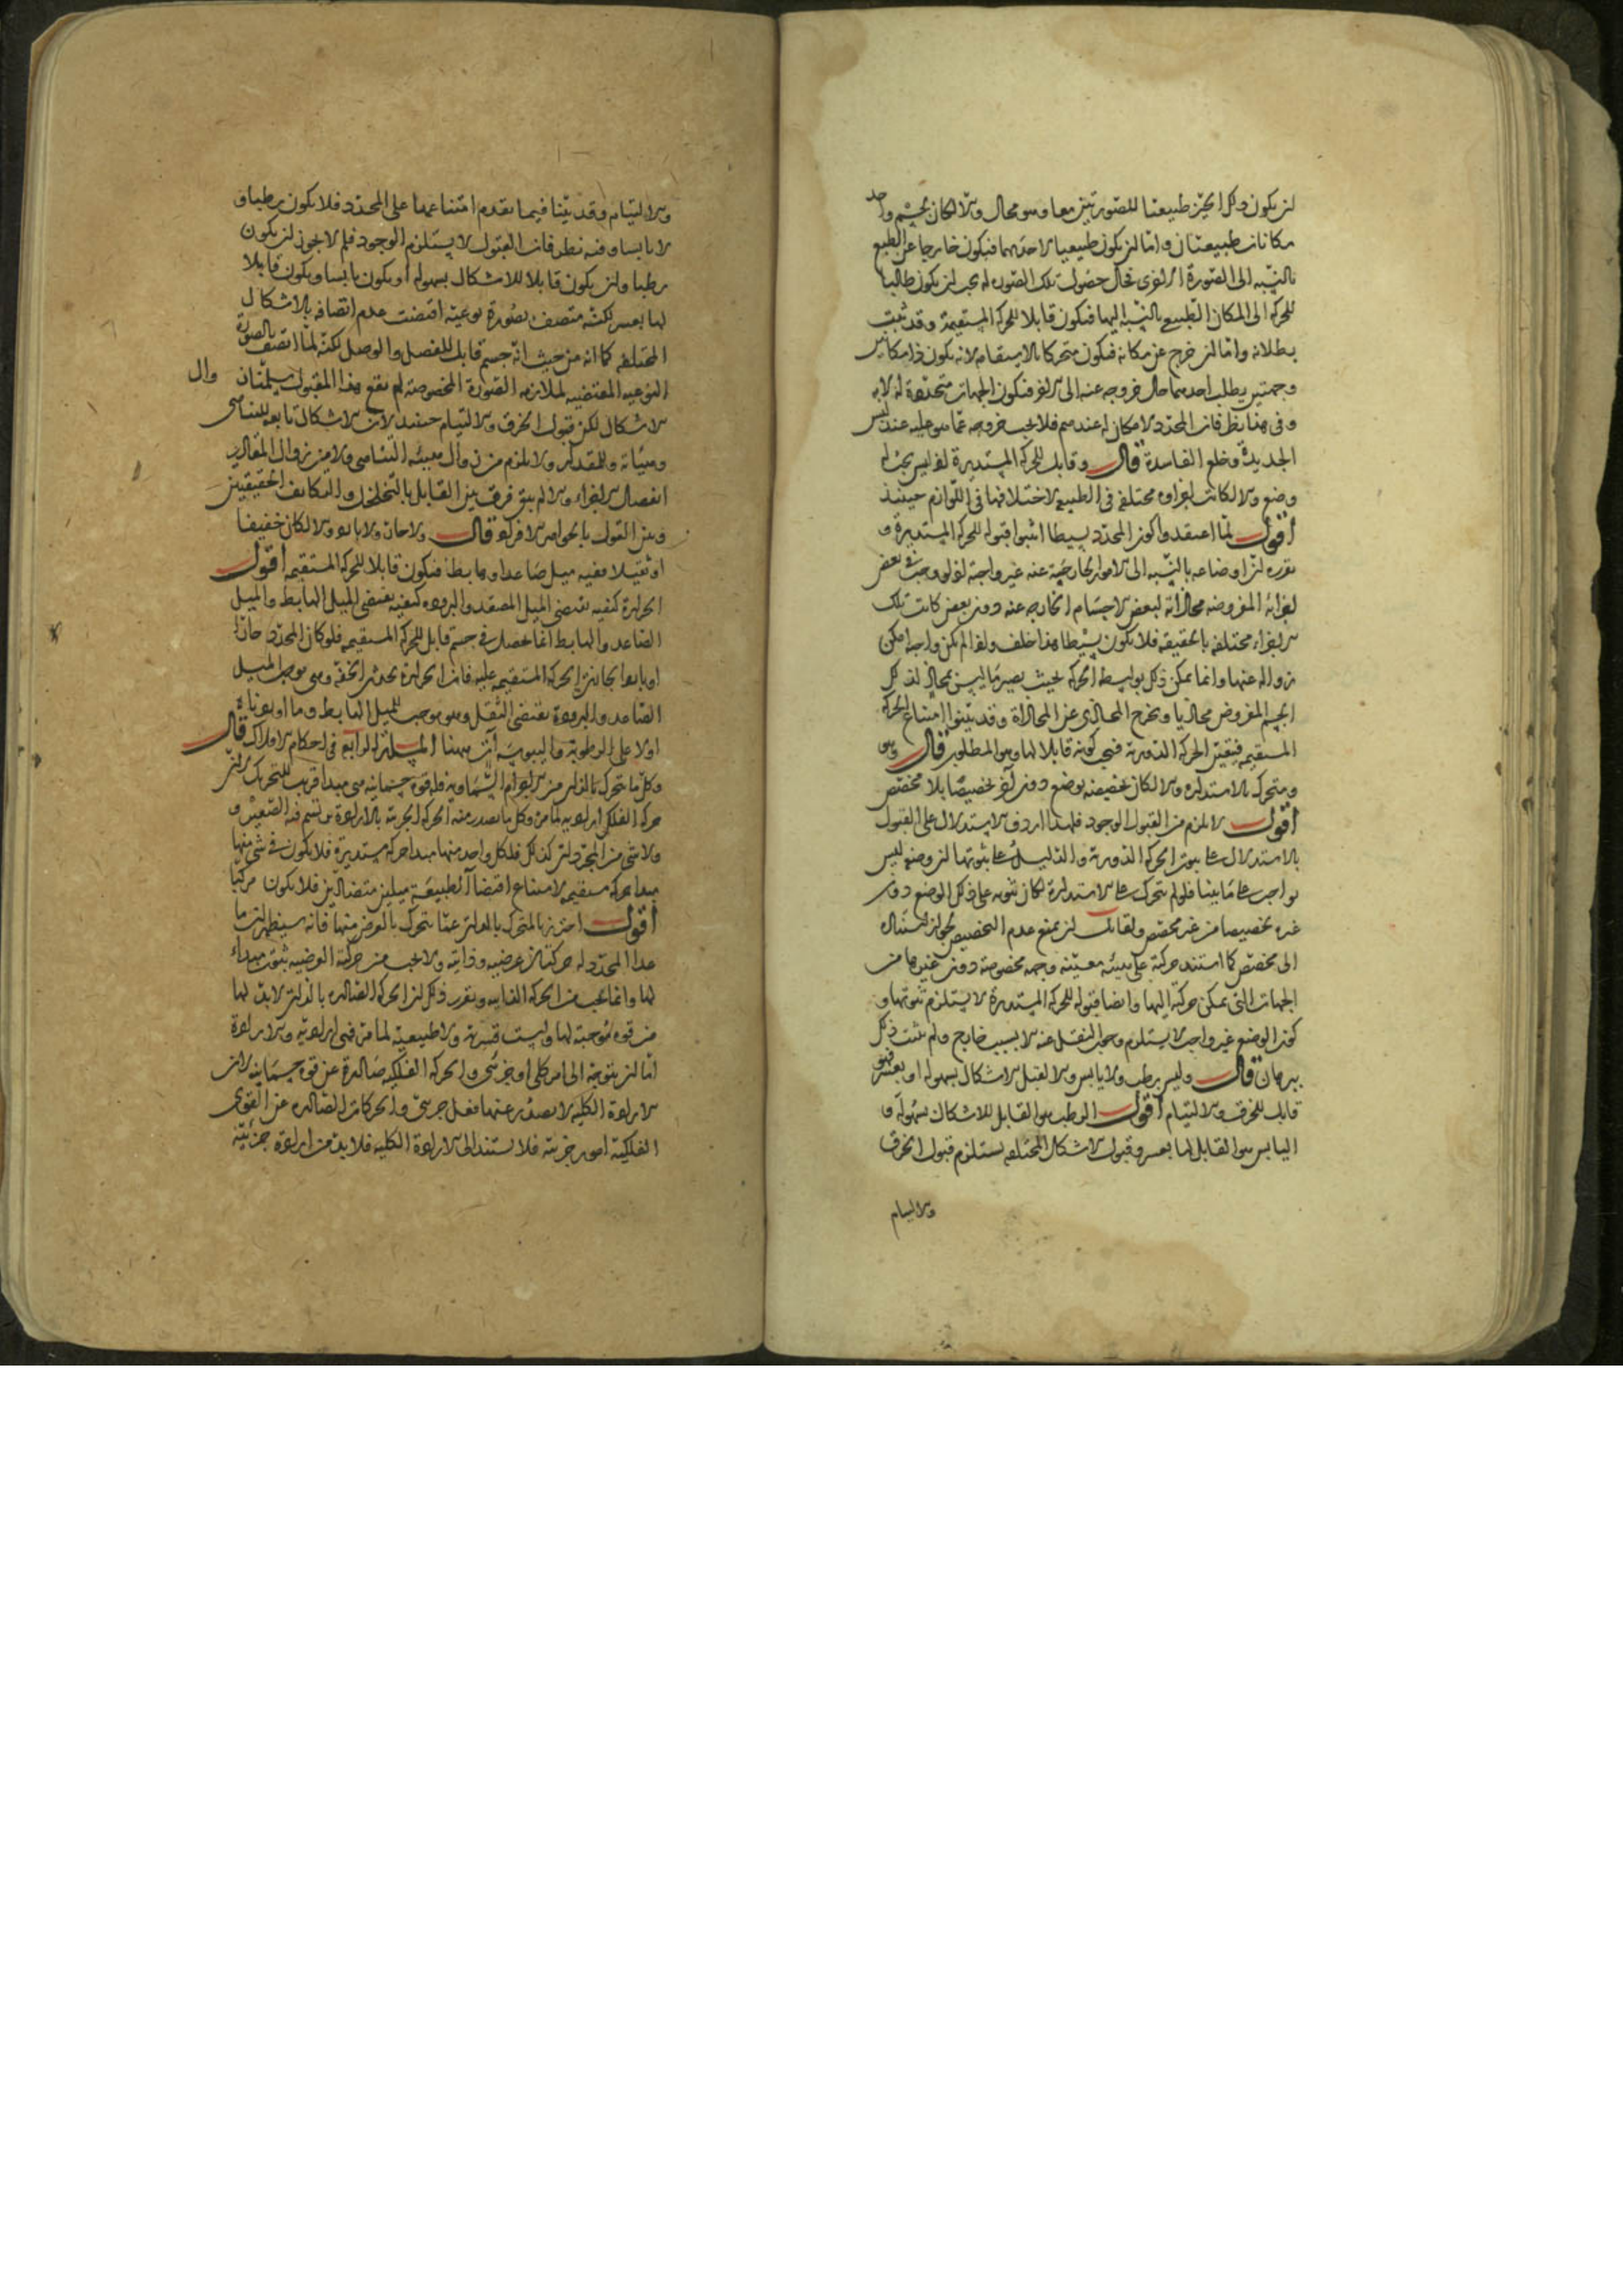 ان يكون ذلك الحيز طبيعتا للصورتين معا وهو محال والا لكان لجسم واحد
مكانان طبيعتان واما ان يكون طبيعيا لاحديهما فيكون خارجا عن الطبع
بالنسبة الى الصورة الاخرى فحال حصول تلك الصورة له يجب ان يكون طالبا
للحركة الى المكان الطبيعي بالنسبة اليها فيكون قابلا للحركة المستقيمة وقد ثبت
بطلانه واما ان خرج عن مكانه فيكون متحركا بالاستقامة لانه يكون ذا مكانين
وجهتين يطلب احديهما حال خروجه عنه الى الاخر فتكون الجهات متحددة لا به
وفي هذا نظر فان المحدد لا مكان له عندهم فلا يجب خروجه عما هو عليه عند لبس
الجديدة وخلع الفاسدة قال وقابل للحركة المستديرة اذ ليس يجب له
وضع والا لكانت اجزاؤه مختلفة في الطبيعة لاختلافها في اللوازم حينئذ
اقول لما اعتقدوا كون المحدد بسيطا اثبتوا قبوله للحركة المستديرة و
تقريره ان اوضاعه بالنسبة الى الامور الخارجية عنه غير واجبة اذ لو وجب في بعض
اجزائه المفروضة محاذاته لبعض الاجسام الخارجة عنه دون بعض كانت تلك
الاجزاء مختلفة بالحقيقة فلا يكون بسيطا هذا خلف واذا لم يكن واجبا امكن
زواله عنها وانما يمكن ذلك بواسطة الحركة بحيث يصير ما ليس بمحاذ لذلك
الجسم المفروض محاذيا ويخرج المحاذي عن المحاذاة وقد بينوا امتناع الحركة
المستقيمة فيتعين الحركة الدورية فيجب كونه قابلا لها وهو المطلوب قال وهو
ومتحرك بالاستدارة والا لكان تخصيصه بوضع دون اخر تخصيصا بلا مخصص
اقول لا يلزم من القبول الوجود فلهذا اردف الاستدلال على القبول
بالاستدلال على ثبوت الحركة الدورية والدليل على ثبوتها ان وضعه ليس
بواجب على ما بينا فلو لم يتحرك على الاستدارة لكان ثبوته على ذلك الوضع دون
غيره تخصيصا من غير مخصص ولقائل ان يمنع عدم التخصيص لجواز استناده
الى مخصص كما استند حركته على هيئة معينة وجهة مخصوصة دون غيرها من
الجهات التي يمكن حركته اليها وايضا قبوله للحركة المستديرة لا يستلزم ثبوتها و
كون الوضع غير واجب لا يستلزم وجوب النقل عنه الا بسبب خارج ولم يثبت ذلك
ببرهان قال وليس برطب ولا يابس والا لقبل الاشكال بسهولة او بعسر فهو
قابل للخرق والالتيام اقول الرطب هو القابل للاشكال بسهولة و
اليابس هو القابل لها بعسر وقبول الاشكال المختلفة يستلزم قبول الخرق
والالتيام
والالتيام وقد بينا فيما تقدم امتناعهما على المحدد فلا يكون رطبا و
لا يابسا وفيه نظر فان القبول لا يستلزم الوجود فلم لا يجوز ان يكون
رطبا وان يكون قابلا للاشكال بسهولة او يكون يابسا ويكون قابلا
لها بعسر لكنه متصف بصورة نوعية اقتضت عدم اتصافه بالاشكال
المختلفة كما انه من حيث انه جسم قابل للفصل والوصل لكنه لما اتصف بالصورة
النوعية المقتضية لملازمة الصورة المخصوصة لم يقع هذا المقبول سلمنا ان
وال
الاشكال لكن قبول الخرق والالتيام حينئذ لان الاشكال تابعة للتناهي
وهيئاته وللمقدار ولا يلزم من زوال هيئة التناهي ولا من زوال المقادير
انفصال الاجزاء والا لم يبق فرق بين القابل بالتخلخل والتكاثف الحقيقيين
وبين القول بالجواهر الافراد قال ولا حار ولا بارد والا لكان خفيفا
او ثقيلا ففيه ميل صاعد او هابط فيكون قابلا للحركة المستقيمة اقول
الحرارة كيفية تقتضي الميل المصعد والبرودة كيفية تقتضي الميل الهابط والميل
الصاعد والهابط انما يحصل في جسم قابل للحركة المستقيمة فلو كان المحدد حارا
او باردا لجازت الحركة المستقيمة عليه فان الحرارة تحدث الخفة وهي توجب الميل
الصاعد والبرودة تقتضي الثقل وهو يوجب الميل الهابط وما اوردناه
اولا على الرطوبة واليبوسة آت ههنا المسئلة الرابعة في احكام الافلاك قال
وكل ما يتحرك بالذات من الاجرام السماوية فله قوة جسمانية هي مبدا قريب للتحريك لان
حركة الفلك ارادية لما مر وكل ما تصدر عنه الحركة الجزئية بالارادة يرتسم فيه الصغير و
ولا شئ من المجردات كذلك فلكل واحد منها مبدا حركة مستديرة فلا يكون في شئ منها
مبدا حركة مستقيمة لامتناع اقتضاء الطبيعة ميلين متضادين فلا يكون مركبا
اقول احترز بالمتحرك بالذات عما يتحرك بالعرض منها فانه سيظهر ان ما
عدا المحدد له حركتان عرضية وذاتية ولا يجب من حركته العرضية ثبوت مبداء
لها وانما يجب من الحركة الذاتية وتقرير ذلك ان الحركة الصادرة بالذات لا بد لها
من قوة موجبة لها وليست قسرية ولا طبيعية لما مر فهي ارادية والارادة
اما ان يتوجه الى امر كلي او جزئي والحركة الفلكية صادرة عن قوة جسمانية لان
الارادة الكلية لا يصدر عنها فعل جزئي والحركات الصادرة عن القوى
الفلكية امور جزئية فلا يستند الى الارادة الكلية فلا بد من ارادة جزئية